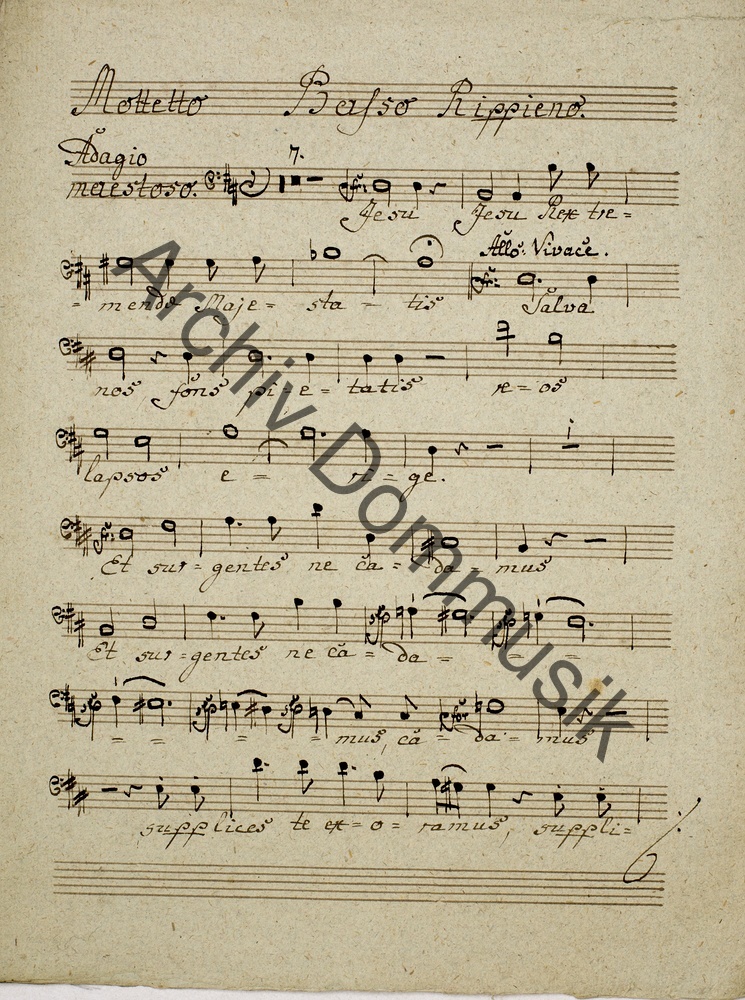 Mottetto Basso Rippieno.
Adagio 7.
maestoso.
Jesu Jesu Rex tre=
Allo. Vivace.
= mendæ Maje= sta = tis Salva
nos fons pi=e= tatis re=os
lapsos e = ri = ge.
Et sur=gentes ne ca = da = mus
Et sur=gentes ne ca = da = = =
= = = mus, ca = da = mus
supplices te ex=o= ramus, suppli=
Archiv Dommusik